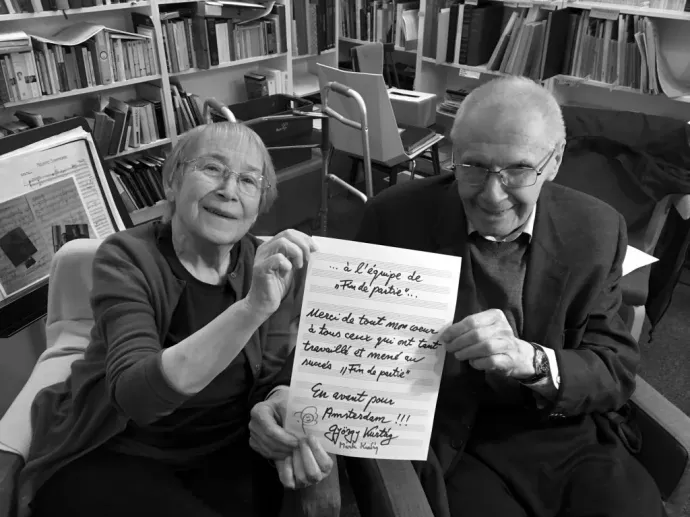 ... à l'équipe de
"Fin de partie"...
Merci de tout mon coeur
à tous ceux qui ont tant
travaillé et mené au
succès "Fin de partie"
En avant pour
Amsterdam !!!
György Kurtág
Márta Kurtág